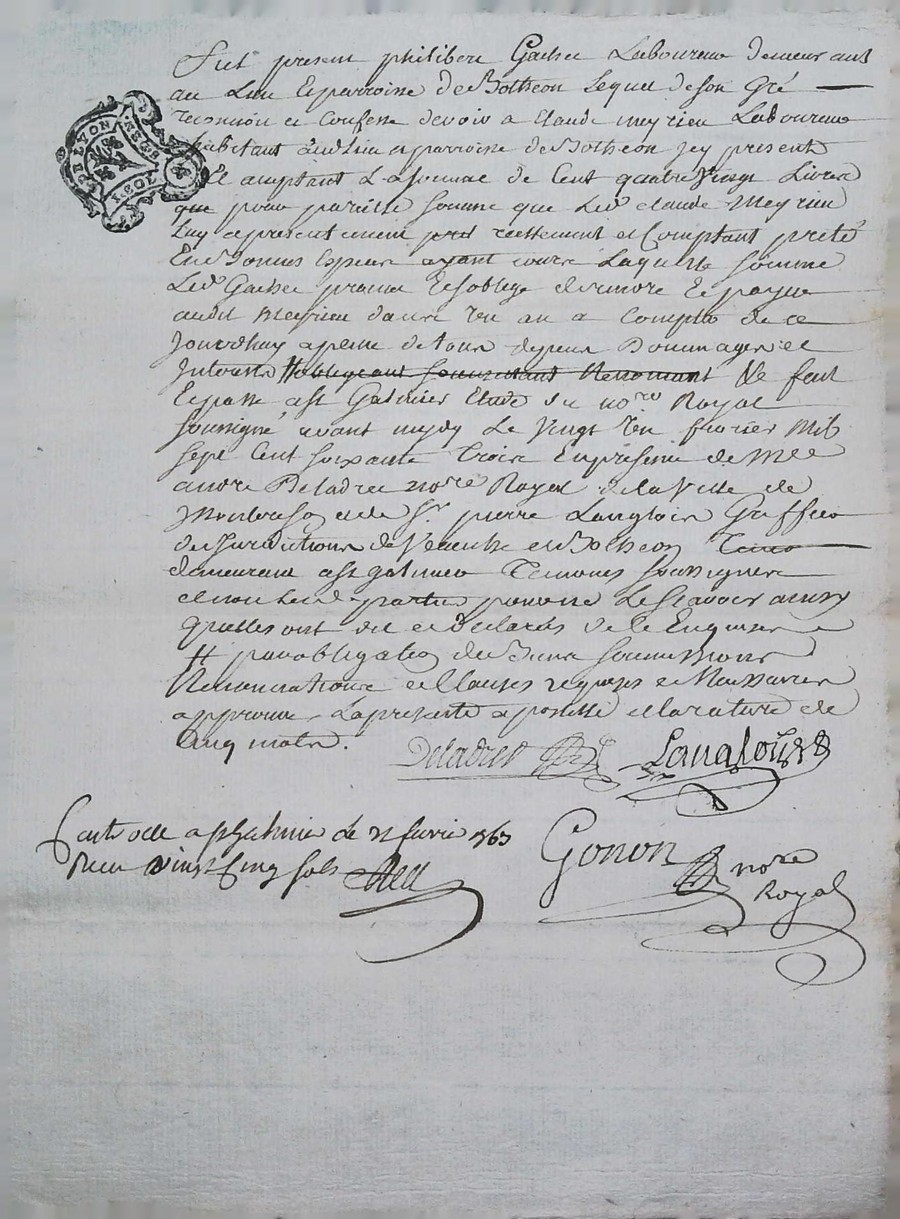 Fut present philibert Gachet Laboureur demeurant
au Lieu & parroisse de Botheon Lequel de son gré
reconnu et Confesse devoir a Claude meyrieu Laboureur
habitant audit Lieu et parroisse de Botheon icy present
Et acceptant La somme de Cent quatre Vingt Livres
que pour pareille somme que Led. Claude Meyrieu
Luy a presentement reellement et Comptant preté
En bonnes Especes ayant cours Laquelle somme
Led. Gachet promet Et s'oblige de rendre Et payer
audit Meyrieu dans un an a Compter de ce
Jourdhuy a peine de tous depens Dommages et
Interets # obligeant soumettant Renonceant De fait
Et passé a St Galmier Etude du nore. Royal
soussigné avant midy Le Vingt Un fevrier Mil
sept Cent soixante Trois En presence de Mre
andre Deladret nore Royal de la Ville de
Montbrison et de Sr. pierre Langlois Greffier
des Juridictions de Veauche et Botheon
demeurant a St galmier Temoins soussignés
et non Les d. parties pour ne Le scavoir ainsy
qu'elles ont dit et Declarés de ce Enquises
# par obligation de Biens soumissions
Renonciations et Clauses requises et Necessaires
approuvé La presente apostille et la rature de
Cinq mots.
Deladret Langlois
Controllé a St Galmier le 21 fevrier 1763
Reçu vingt Cinq sols
Gonon nore
Royal
DE LYON
1. SOL